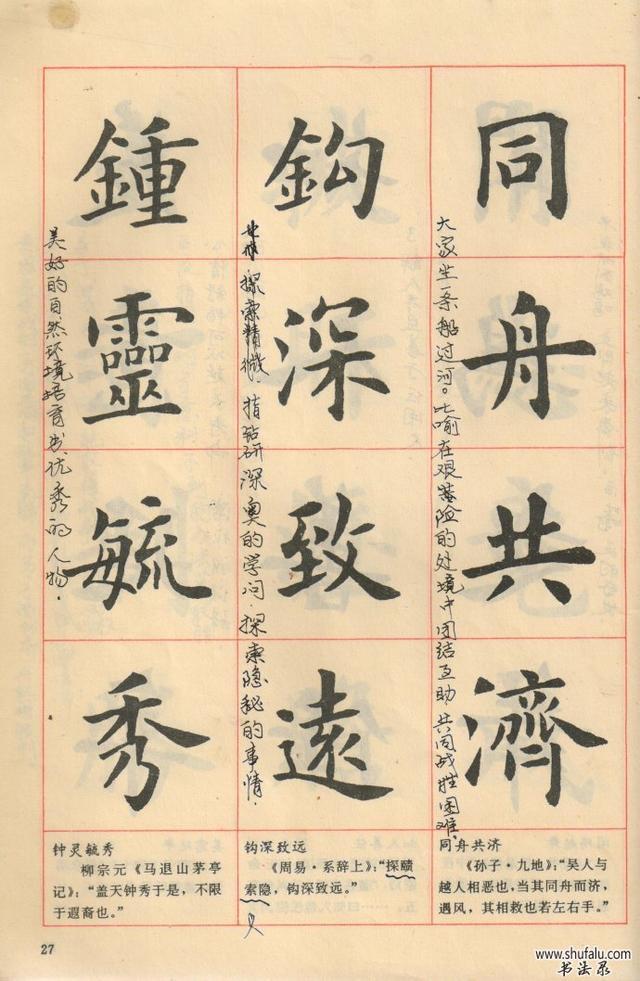 同舟共濟
大家坐一条船过河。比喻在艰险的处境中团结互助，共同战胜困难。
鈎深致遠
探索精微，指钻研深奥的学问，探索隐秘的事情。
鍾靈毓秀
美好的自然环境培育出优秀的人物。
同舟共济
《孙子·九地》：“吴人与
越人相恶也，当其同舟而济，
遇风，其相救也若左右手。”
钩深致远
《周易·系辞上》：“探赜
索隐，钩深致远。”
钟灵毓秀
柳宗元《马退山茅亭
记》：“盖天钟秀于是，不限
于遐裔也。”
27
www.shufalu.com
书法录